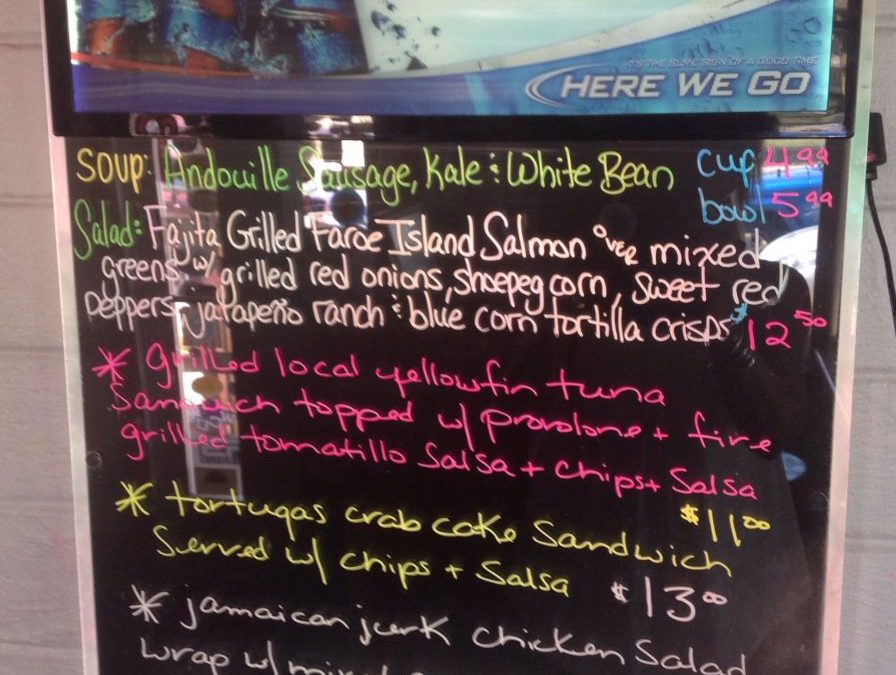 IT'S THE SURE SIGN OF A GOOD TIME
HERE WE GO
SOUP: Andouille Sausage, Kale & White Bean cup 4.99
bowl 5.99
Salad: Fajita Grilled Faroe Island Salmon over mixed
greens w/ grilled red onions, shoepeg corn, sweet red
peppers, jalapeño ranch & blue corn tortilla crisps $12.50
* grilled local yellowfin tuna
Sandwich topped w/ provolone + fire
grilled tomatillo Salsa + chips + Salsa
$11.00
* tortugas crab cake Sandwich
Served w/ chips + Salsa $13.00
* jamaican jerk chicken Salad
wrap w/